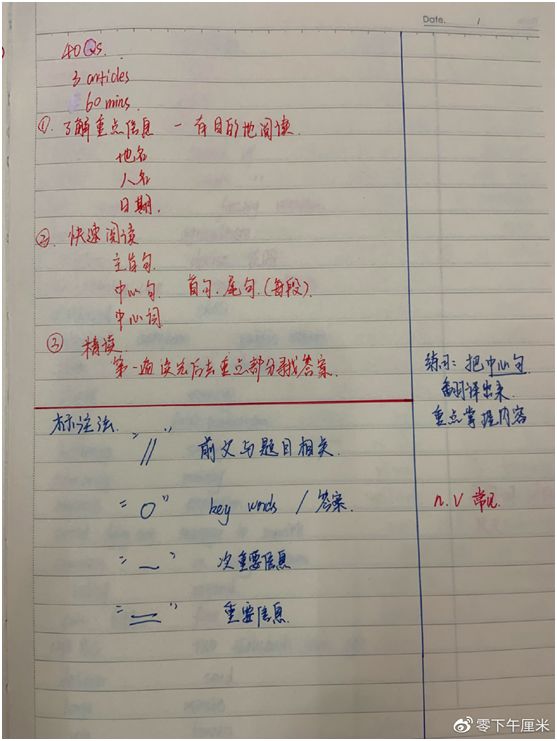 Date. /
40 Qs.
3 articles
60 mins.
① 了解重点信息 - 有目的地阅读.
地名
人名
日期.
② 快速阅读
主旨句.
中心句. 首句. 尾句. (每段).
中心词
③ 精读.
第一遍读完后去重点部分寻找答案.
练习: 把中心句
翻译出来
重点掌握内容
标注法.
"//" 前文与题目相关.
"○" key words / 答案.
n.v 常见.
"—" 次重要信息
"=" 重要信息.
零下午厘米